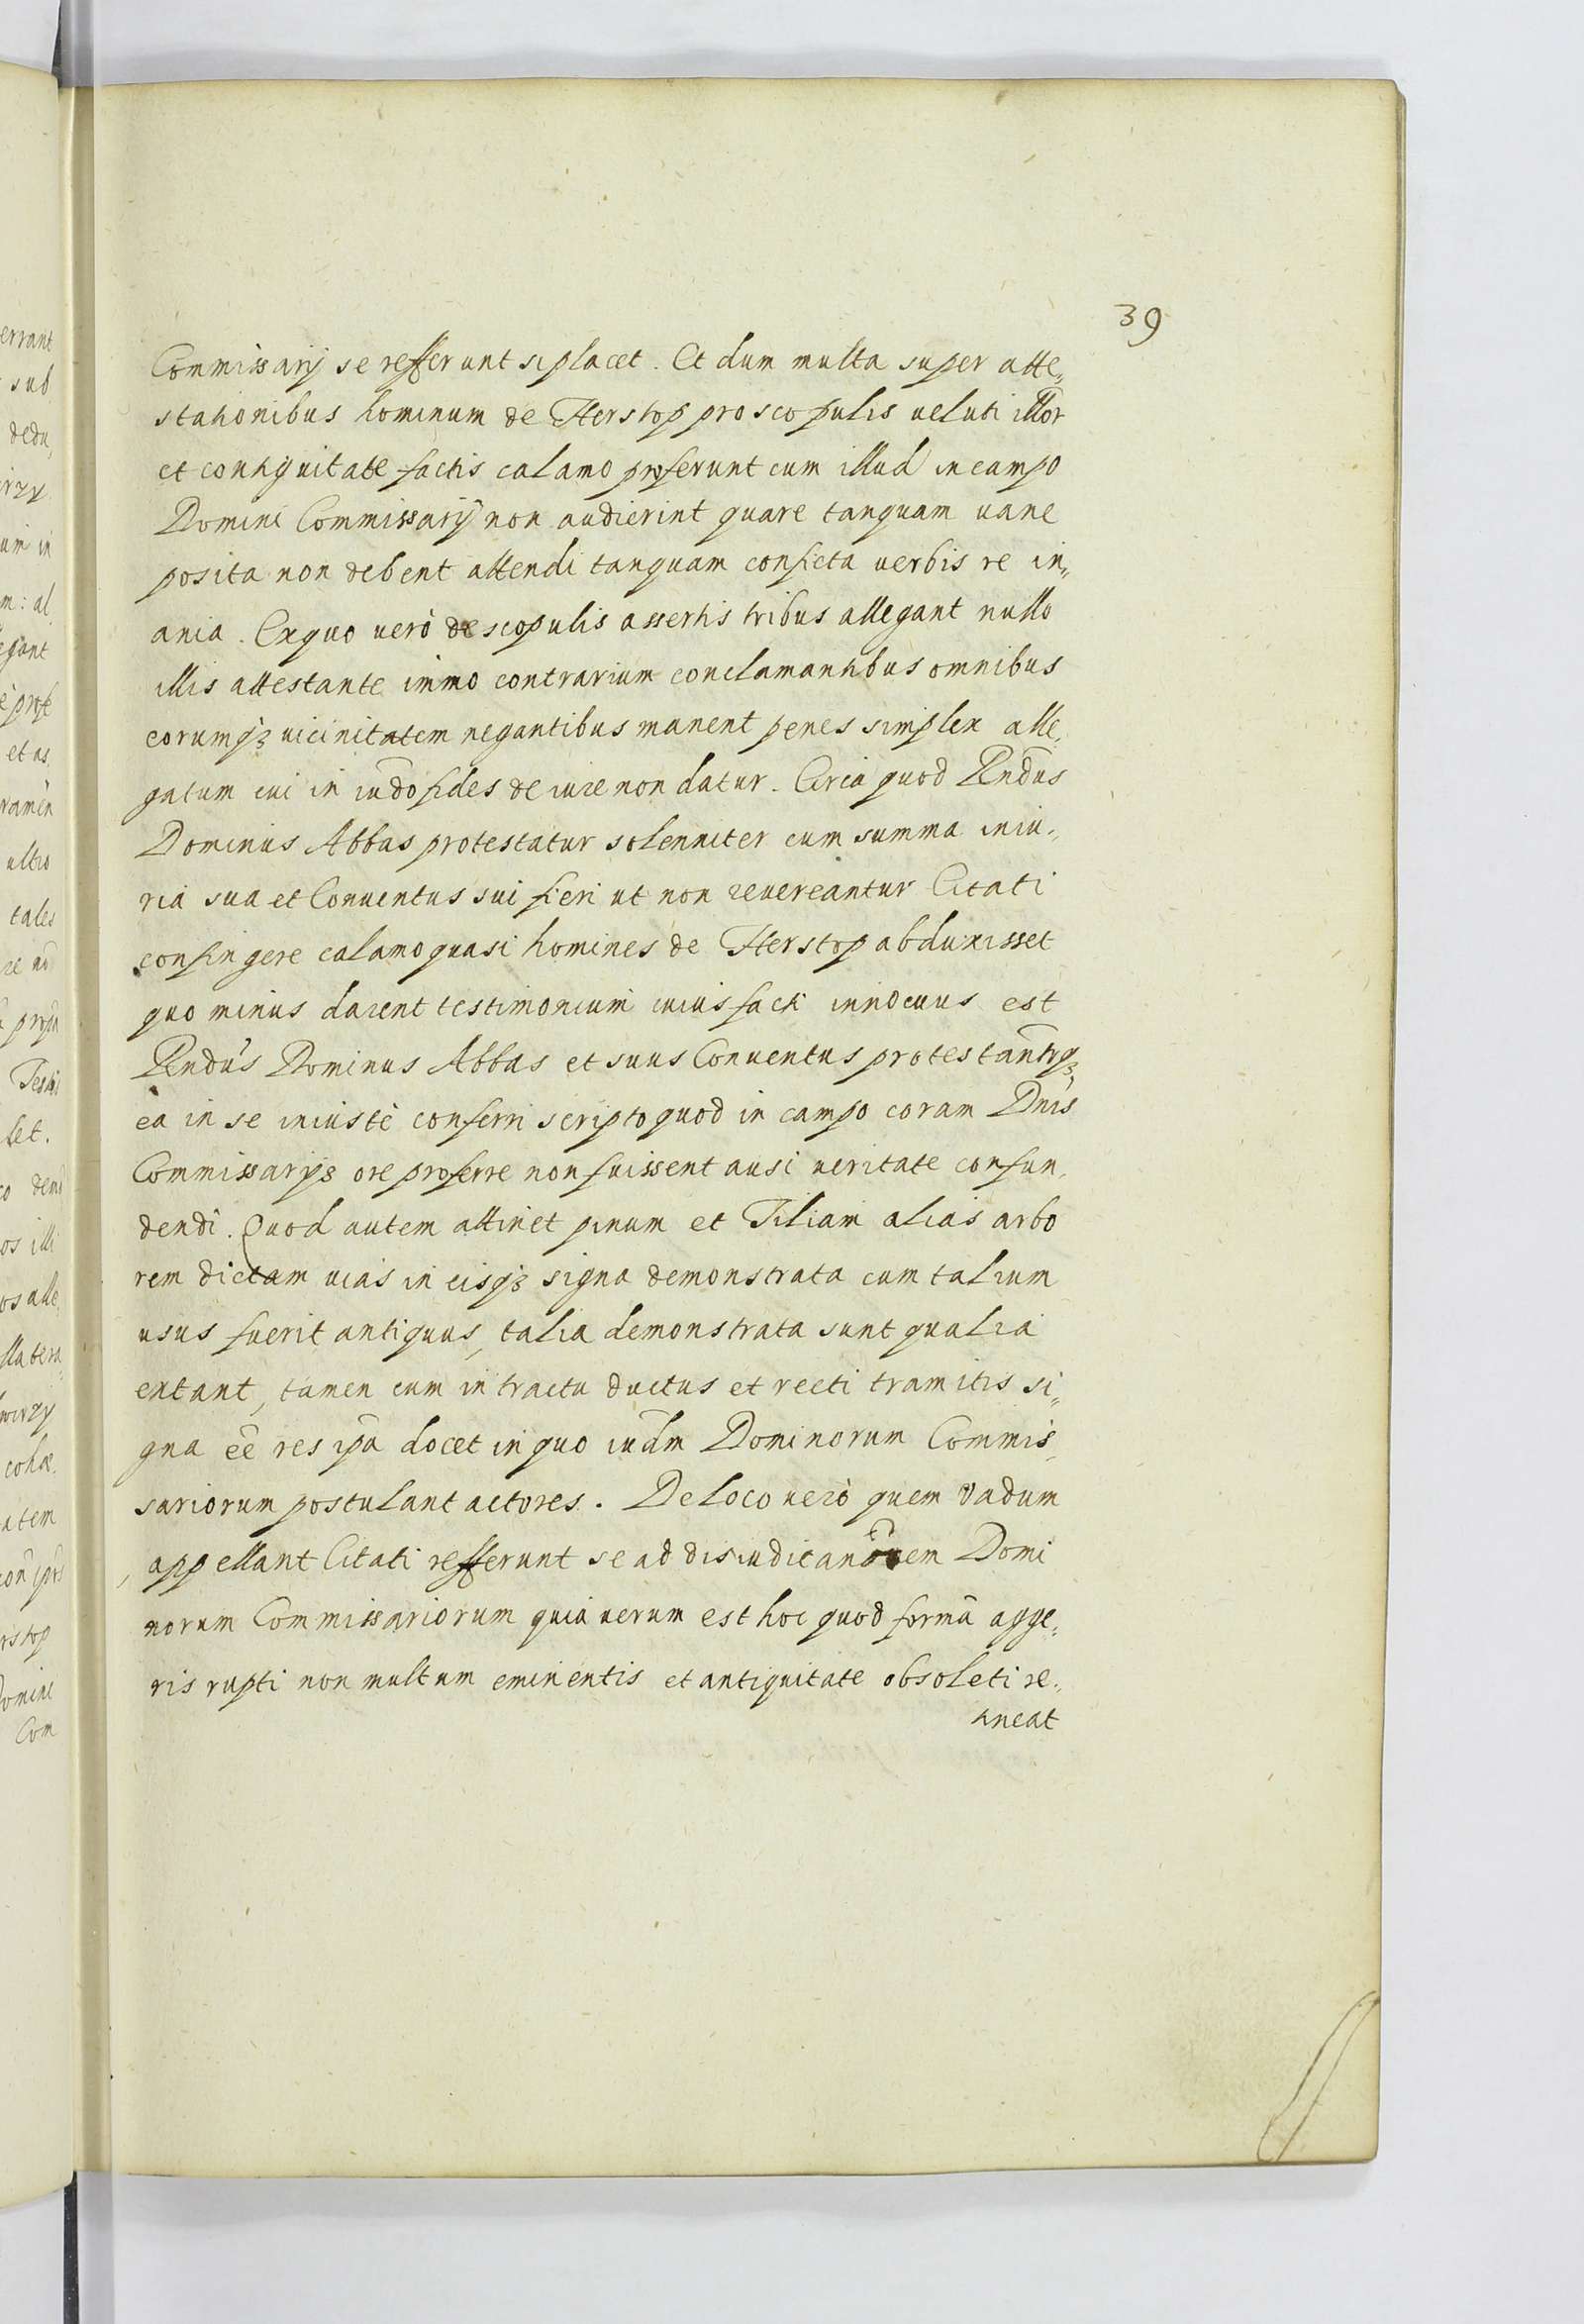 39
Commissarij se refferunt si placet. Et dum multa super atte„
stationibus hominum de Herstop pro scopulis ueluti illor̃
et contiguitate factis calamo proferunt cum illud in campo
Domini Commissarij non audierint quare tanquam uane
posita non debent attendi tanquam conficta uerbis re in„
ania. Ex quo verò de scopulis assertis tribus allegant nullo
illis attestante immo contrarium conclamantibus omnibus
eorumqz uicinitatem negantibus manent penes simplex alle„
gatum cui in iudõ fides de iure non datur. Circa quod Rndus
Dominus Abbas protestatur solenniter cum summa iniu„
ria sua et Conuentus sui fieri ut non reuereantur Citati
confingere calamo quasi homines de Herstop abduxisset
quo minus darent testimonium cuius facti innocuus est
Rndus Dominus Abbas et suus Conuentus protestantrqz
ea in se iniustè conferri scripto quod in campo coram Dnis
Commissarijs ore proferre non fuissent ausi ueritate confun„
dendi. Quod autem attinet pinum et Tiliam alias arbo
rem dictam uias in eisqz signa demonstrata cum talium
usus fuerit antiquus, talia demonstrata sunt qualia
extant, tamen cum in tractu ductus et recti tramitis si„
gna eẽ res ip̃a docet in quo iudm Dominorum Commis„
sariorum postulant actores. De loco uerò quem vadum
appellant Citati refferunt se ad disiudicanõem Domi
norum Commissariorum quia uerum est hoc quod formã agge„
ris rupti non multum eminentis et antiquitate obsoleti re„
tineat
errant
sub
dedu„
um in
m: al
egant
prof
et as
ultro
tales
Testi
let.
os illi
os alle
cohæ
atem
rstop
Domini
Com